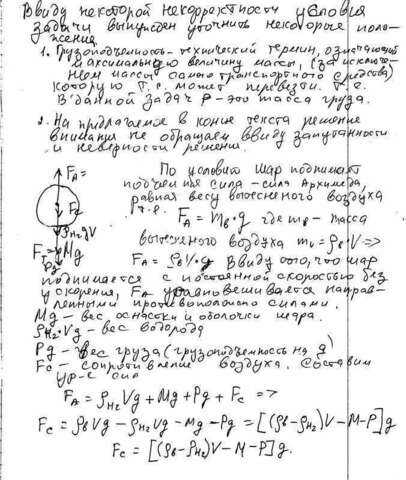 Ввиду некоторой некорректности условия
задачи вынужден уточнить некоторые поло-
жения.
1. Грузоподъемность-технический термин, означающий
максимальную величину массы, (за исключе-
нием массы самого транспортного средства)
которую Т.С. может перевезти. Т.е.
В данной задач P - это масса груза.
2. На предлагаемое в конце текста решение
внимания не обращаем ввиду запутанности
и неверности решения.
По условию шар поднимает
подъемная сила - сила Архимеда,
равная весу вытесненного воздуха
т.е. Fₐ = mв·g где mв - масса
вытесненого воздуха mв = ρв·V =>
Fₐ = ρвV·g Ввиду того, что шар
поднимается с постоянной скоростью без
ускорения, Fₐ уравновешивается направ-
ленными противоположно силами.
Mg - вес оснастки и оболочки шара.
ρH₂·Vg - вес водорода
Pg - вес груза (грузоподъемность на g)
Fc - сопротивление воздуха. Составим
ур-е сил
Fₐ = ρH₂Vg + Mg + Pg + Fc =>
Fc = ρвVg - ρH₂Vg - Mg - Pg = [(ρв-ρH₂)V - M - P]g
Fc = [(ρв-ρH₂)V - M - P]g.
Fₐ=
Fc
ρH₂gV
Mg
Pg